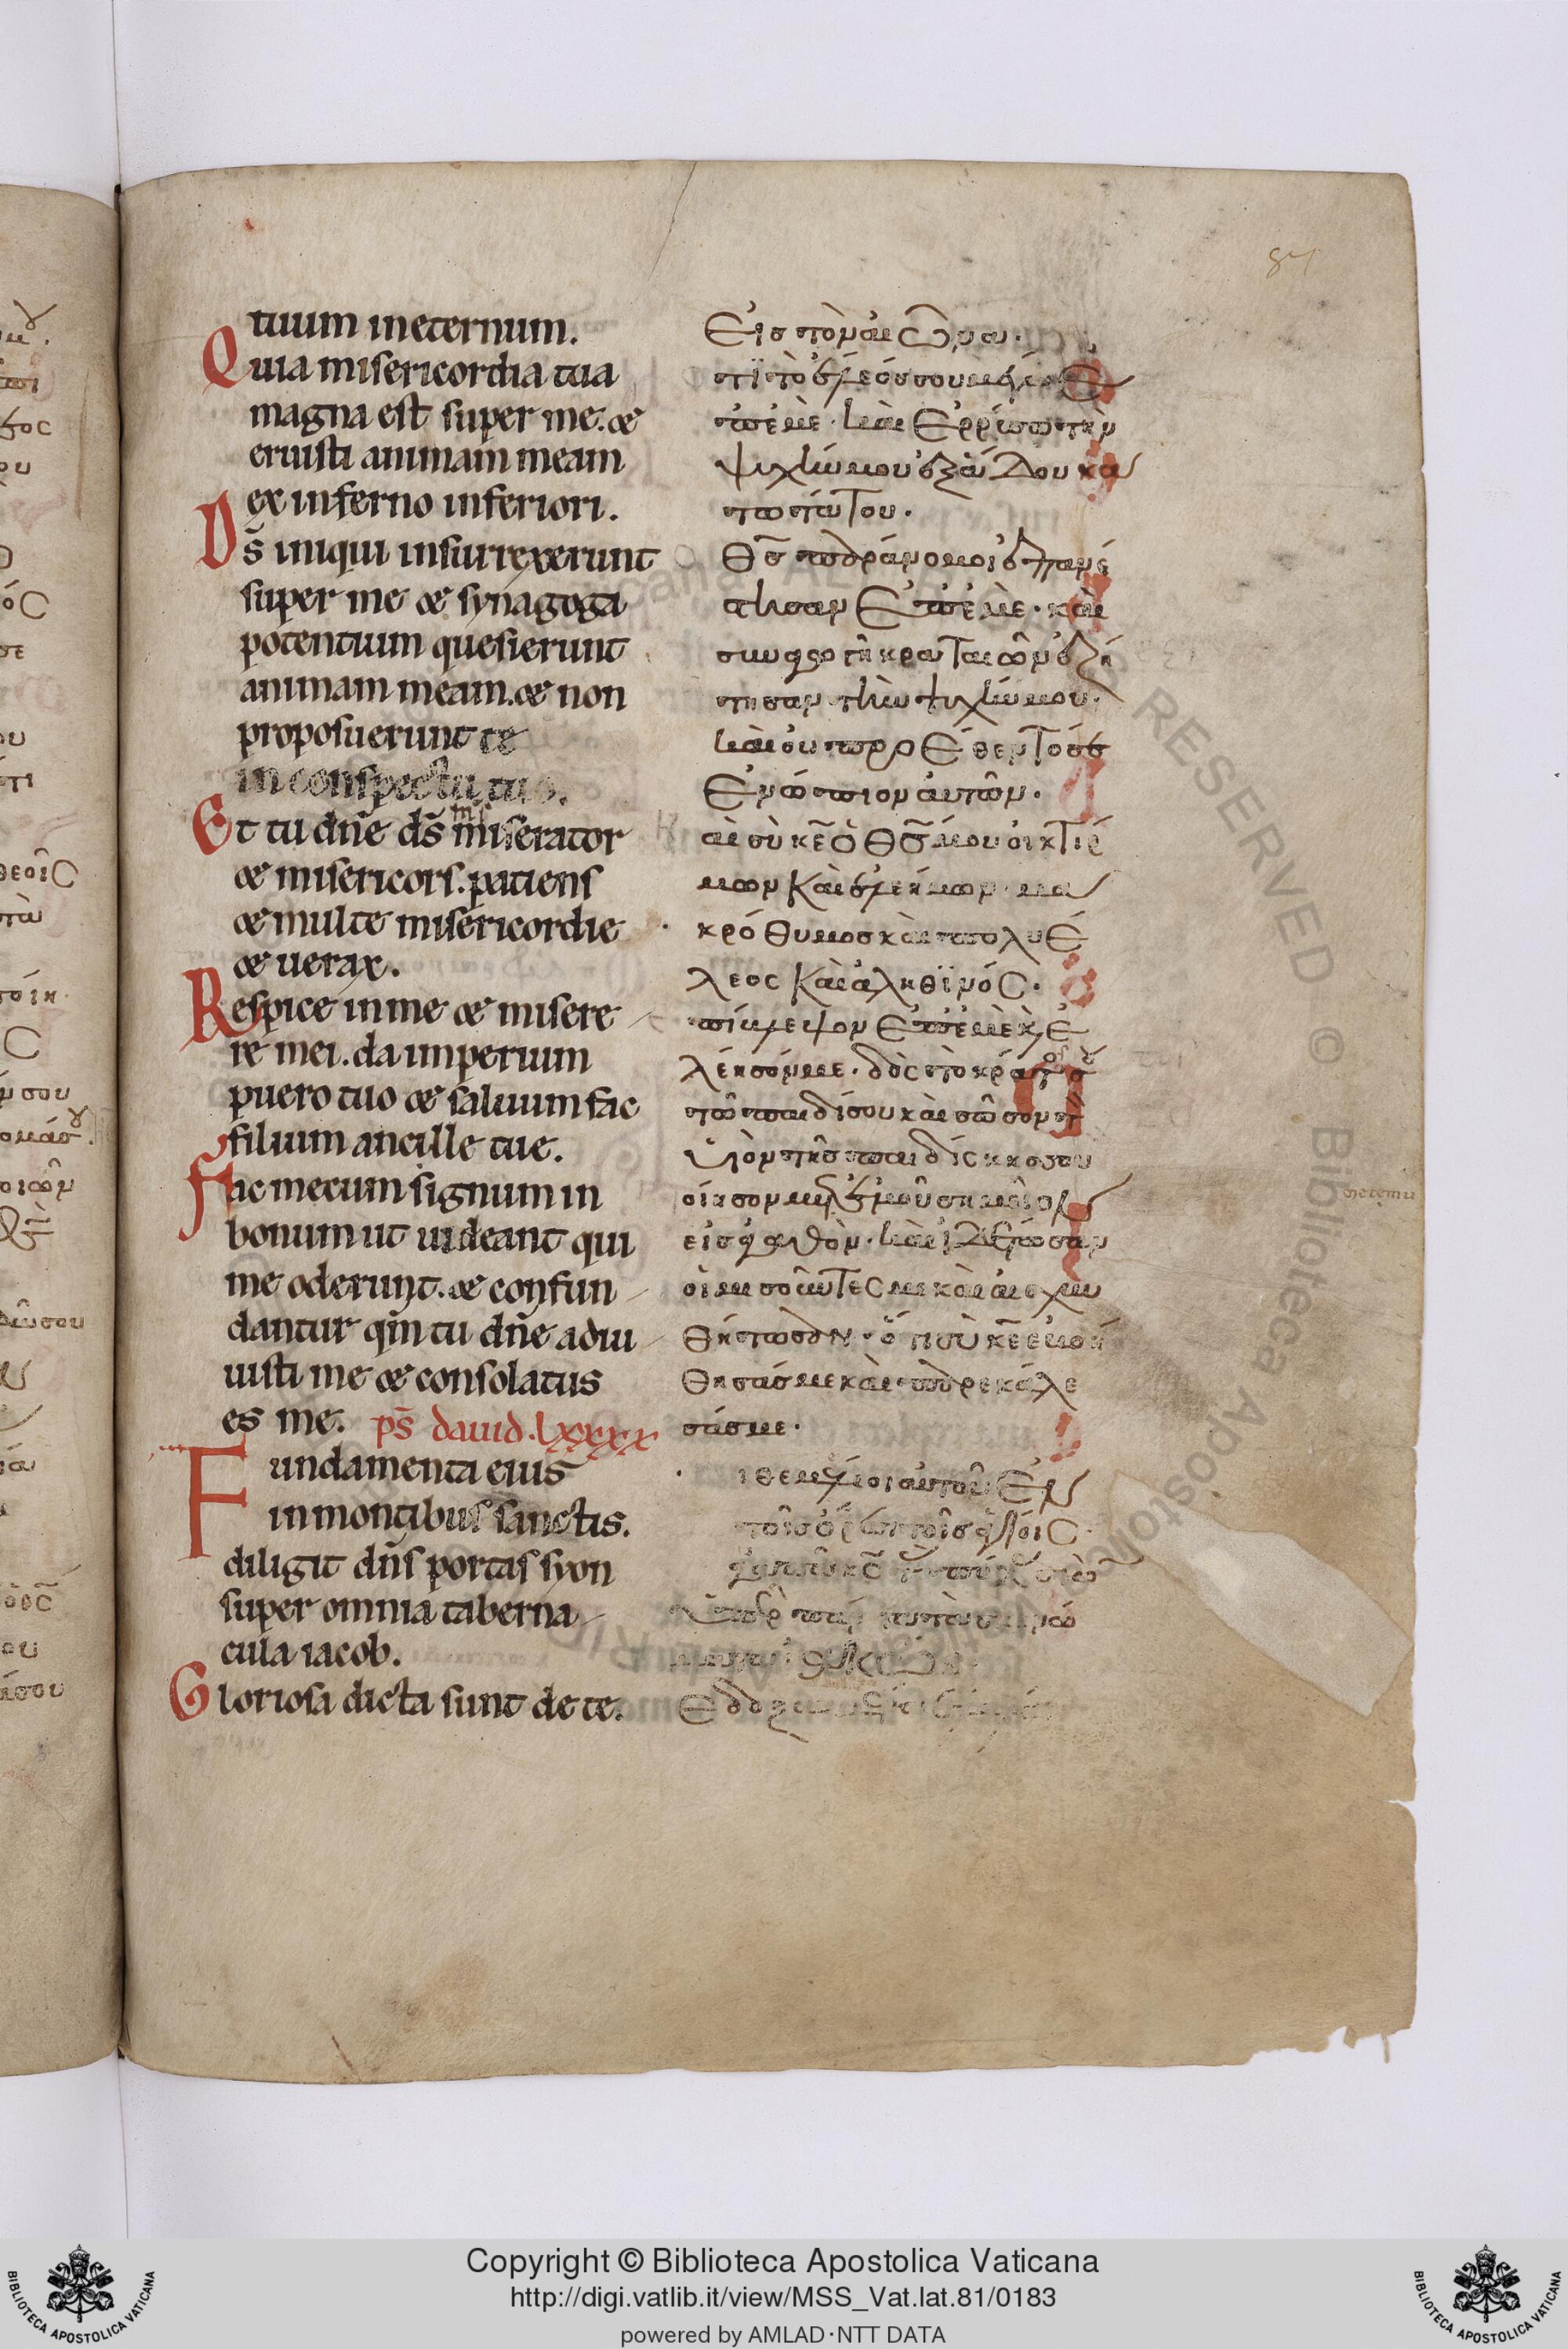 87
tuum in eternum.
Quia misericordia tua
magna est super me. &
eruisti animam meam
ex inferno inferiori.
Ds̄ iniqui insurrexerunt
super me & synagoga
potentium quesierunt
animam meam. & non
proposuerunt te
in conspectu tuo.
Et tu dn̄e ds̄ miserator
& misericors. patiens
& multe misericordie
& uerax.
Respice in me & misere
re mei. da imperium
puero tuo & saluum fac
filium ancille tue.
Fac mecum signum in
bonum ut uideant qui
me oderunt. & confun
dantur qm̄ tu dn̄e adiu
uisti me & consolatus
es me. ps̄ dauid. lxxxx
Fundamenta eius
in montibus sanctis.
diligit dn̄s portas syon
super omnia taberna
cula iacob.
Gloriosa dicta sunt de te.
Εἰσ τὸν αἰῶνα.
τι τὸ ἔλεόσ σου μέγα
ἐπ' ἐμὲ. καὶ ἐρρύσω τὴν
ψυχήν μου ἐξ ἅδου κα
τωτάτου.
Θσ̄ παράνομοι ἐπανέ
στησαν ἐπ' ἐμὲ. καὶ
συναγωγὴ κραταιῶν ἐζή
τησαν τὴν ψυχήν μου.
καὶ οὐ προέθεντό σε
ἐνώπιον αὐτῶν.
αὶ σὺ κε̄ ὁ θσ̄ μου οἰκτίρ
μων καὶ ἐλεήμων. μα
κρόθυμοσ καὶ πολυέ
λεος καὶ ἀληθϊνός.
πίβλεψον ἐπ' ἐμὲ κ̀ ἐ
λέησόν με. δὸς τὸ κράτοσ σου
τῶ παιδί σου καὶ σῶσον τὸν
υἱὸν τῆσ παιδίςκησ σου
οίησον μετ' ἐμοῦ σημεῖον
εἰσ ἀγαθὸν. καὶ ἰδέτωσαν
οἱ μισοῦντές με καὶ αἰσχυν
θήτωσαν. ὅτι σὺ κε̄ ἐβοή
θησάσ με καὶ παρεκάλε
σάσ με.
ι θεμέλιοι αὐτοῦ ἐν
τοῖσ ὄρεσι τοῖσ ἁγίοις.
Copyright © Biblioteca Apostolica Vaticana
http://digi.vatlib.it/view/MSS_Vat.lat.81/0183
powered by AMLAD·NTT DATA
BIBLIOTECA APOSTOLICA VATICANA
BIBLIOTECA APOSTOLICA VATICANA